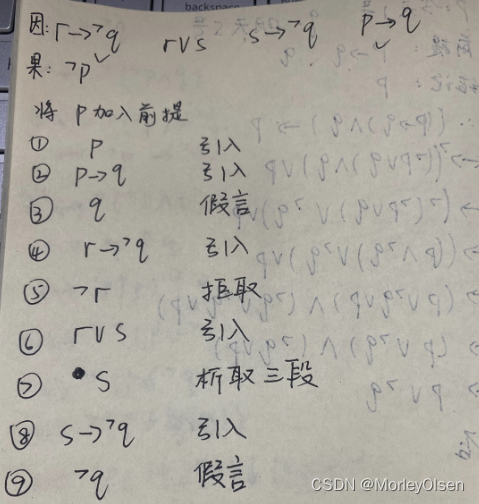 backspace
因: r→¬q r∨s s→¬q p→q
果: ¬p
将 p 加入前提
① p 引入
② p→q 引入
③ q 假言
④ r→¬q 引入
⑤ ¬r 拒取
⑥ r∨s 引入
⑦ s 析取三段
⑧ s→¬q 引入
⑨ ¬q 假言
CSDN @MorleyOlsen